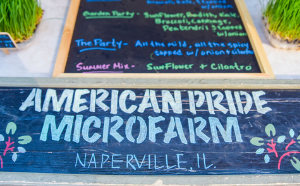 Garden Party - Sunflower, Radish, Kale,
Broccoli, Cabbage,
w/onion
The Party - All the mild, all the spicy
topped w/onion & cilantro
Summer Mix - Sunflower + Cilantro
AMERICAN PRIDE
MICROFARM
NAPERVILLE, IL.